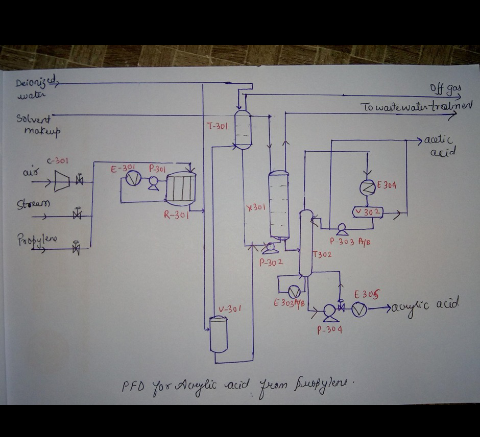 Deionized
water
Off gas
To wastewater treatment
Solvent
makeup
T-301
acetic
acid
C-301
air
E-301
P-301
E304
Stream
R-301
X301
V-302
P-303 A/B
Propylene
P-302
T302
E303A/B
E305
acrylic acid
V-301
P-304
PFD for Acrylic acid from Propylene.